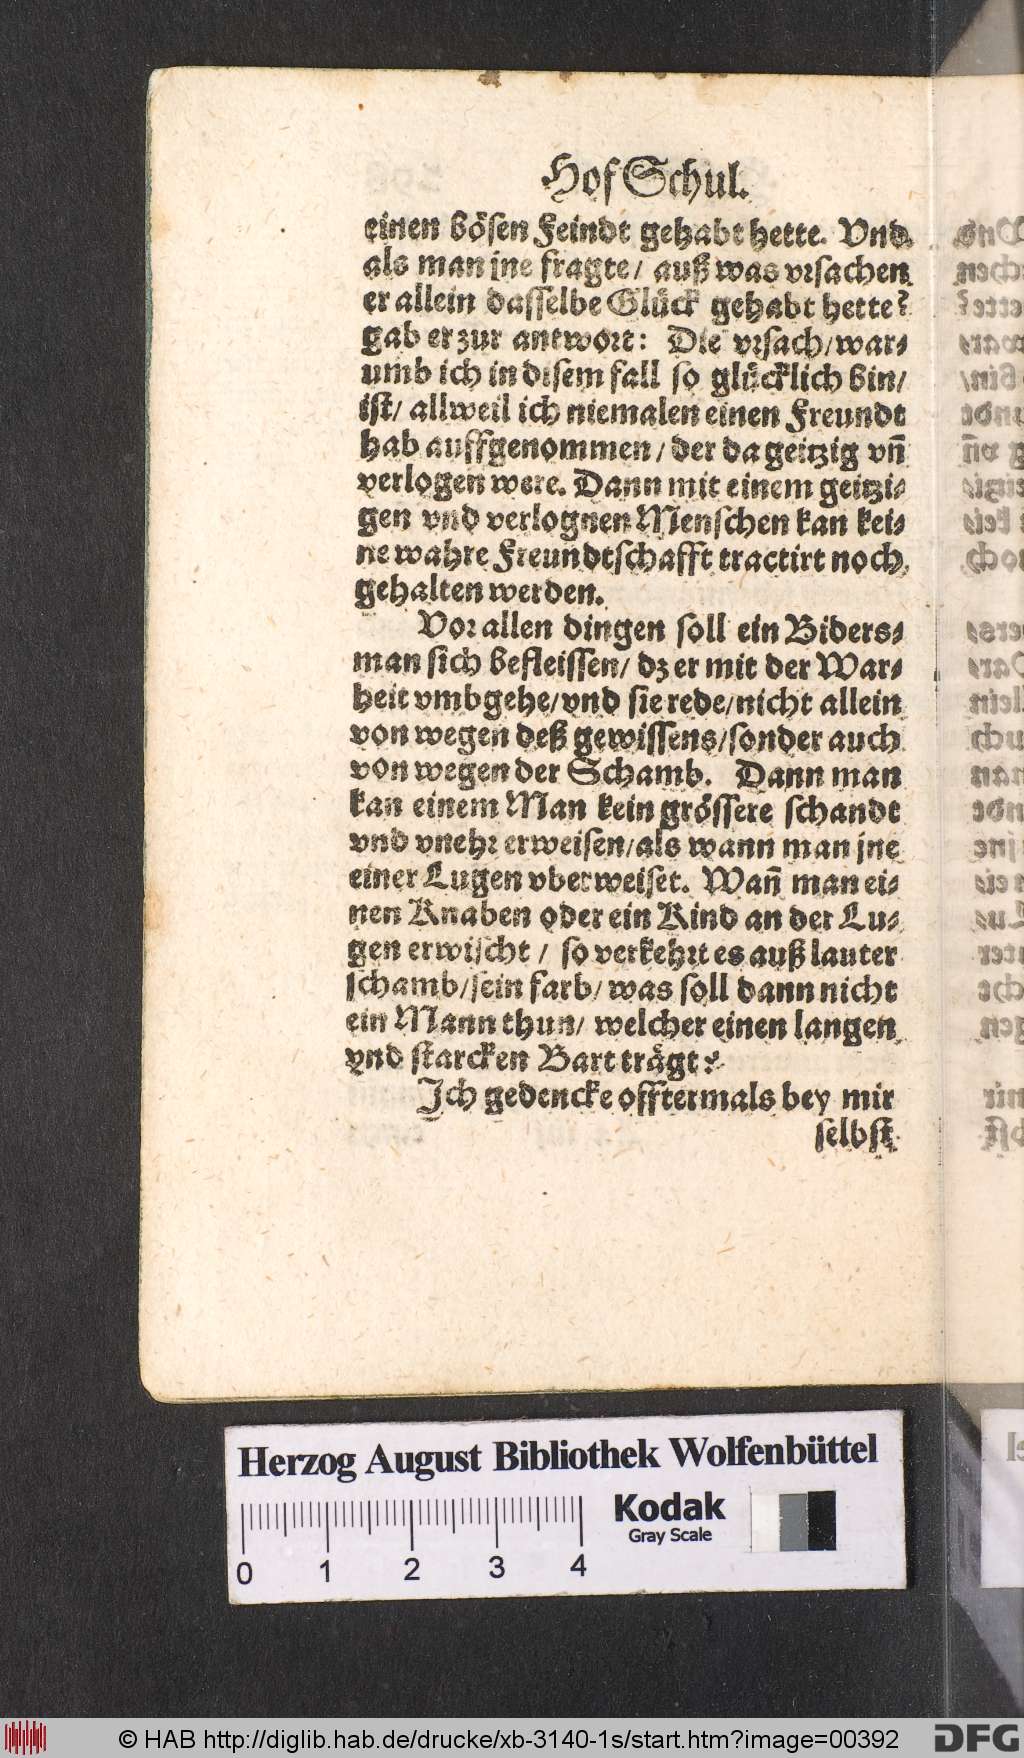 Hof Schul.
einen bösen Feindt gehabt hette. Vnd
als man jne fragte/ auß was vrsachen
er allein dasselbe Glück gehabt hette?
gab er zur antwort: Die vrsach/ war⸗
umb ich in disem fall so glücklich bin/
ist/ allweil ich niemalen einen Freundt
hab auffgenommen/ der da geitzig vñ
verlogen were. Dann mit einem geitzi⸗
gen vnd verlognen Menschen kan kei⸗
ne wahre Freundtschafft tractirt noch
gehalten werden.
Vor allen dingen soll ein Biders⸗
man sich befleissen/ dz er mit der War⸗
heit vmbgehe/ vnd sie rede/ nicht allein
von wegen deß gewissens/ sonder auch
von wegen der Schamb. Dann man
kan einem Man kein grössere schandt
vnd vnehr erweisen/ als wann man jne
einer Lugen vberweiset. Wañ man ei⸗
nen Knaben oder ein Kind an der Lu⸗
gen erwischt/ so verkehrt es auß lauter
schamb/ sein farb/ was soll dann nicht
ein Mann thun/ welcher einen langen
vnd starcken Bart trägt?
Ich gedencke offtermals bey mir
selbst
Herzog August Bibliothek Wolfenbüttel
Kodak
Gray Scale
0 1 2 3 4
© HAB http://diglib.hab.de/drucke/xb-3140-1s/start.htm?image=00392
DFG